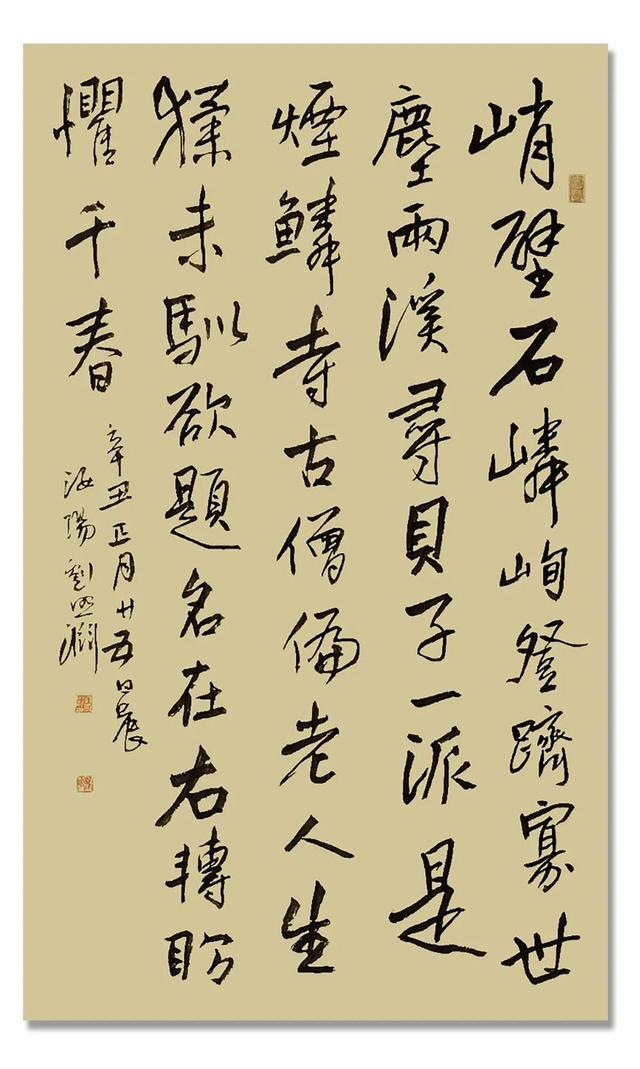 峭壁石嶙峋登躋寡世
塵兩溪尋貝子一派是
煙鱗寺古僧偏老人生
猱未馴欲題名在右轉盼
懼千春
辛丑正月廿五日晨
陽劉